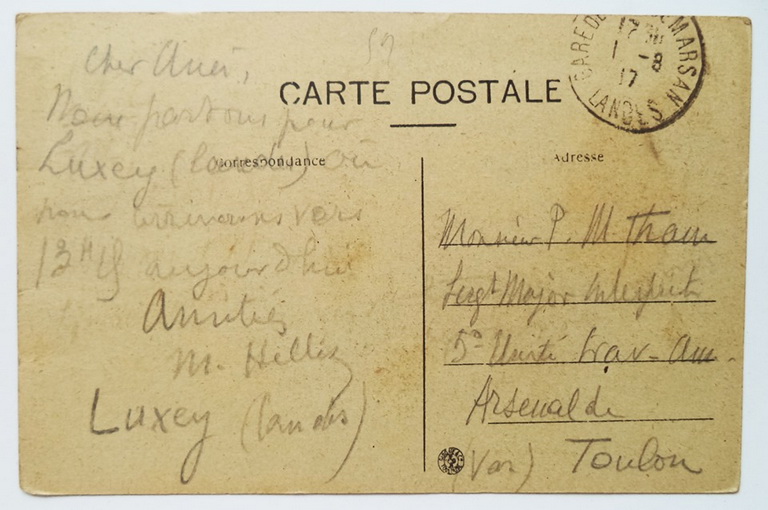 52
Cher Ami,
CARTE POSTALE
Nous partons pour
Luxey (Landes) où
nous arriverons vers
13H45 aujourd'hui
Amitiés
M. Hellis
Luxey (Landes)
Correspondance
Adresse
GARE DE MARSAN
1 -8
17
LANDES
Monsieur P. M. Tham
Sergt Major Interprète
5e Unité trav- Am.
Arsenal de
(Var) Toulon